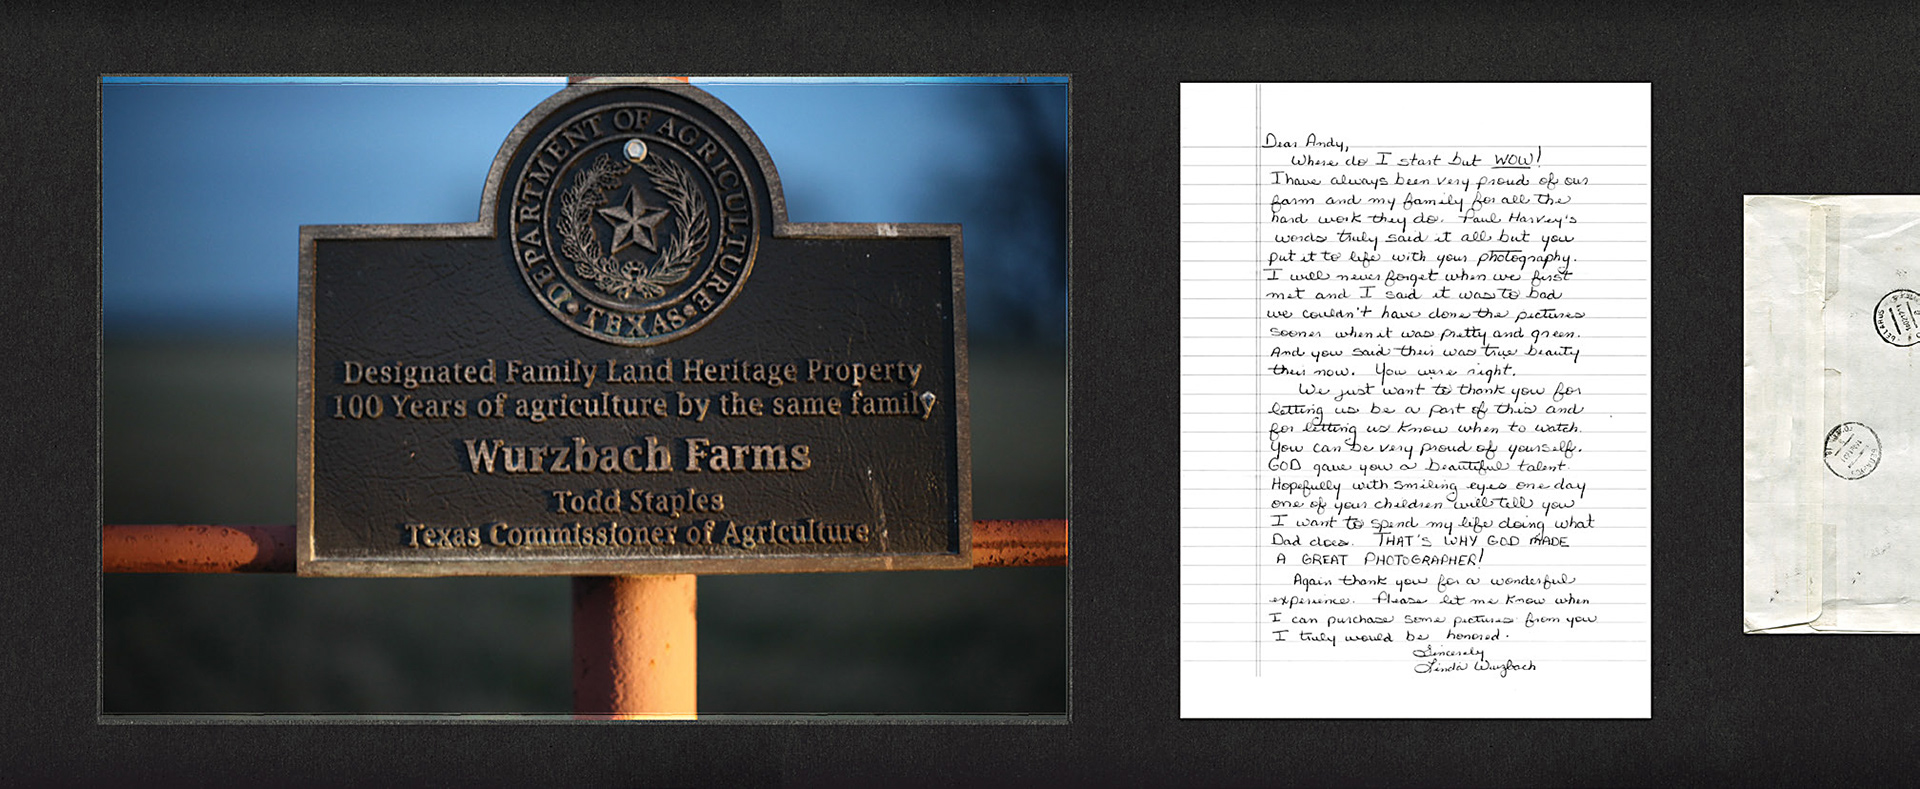 DEPARTMENT OF AGRICULTURE
TEXAS
Designated Family Land Heritage Property
100 Years of agriculture by the same family
Wurzbach Farms
Todd Staples
Texas Commissioner of Agriculture
Dear Andy,
Where do I start but WOW!
I have always been very proud of our
farm and my family for all the
hard work they do. Paul Harvey's
words truly said it all but you
put it to life with your photography.
I will never forget when we first
met and I said it was to bad
we couldn't have done the pictures
sooner when it was pretty and green.
And you said their was true beauty
their now. You were right.
We just want to thank you for
letting us be a part of this and
for letting us know when to watch.
You can be very proud of yourself.
GOD gave you a beautiful talent.
Hopefully with smiling eyes one day
one of your children will tell you
I want to spend my life doing what
Dad does. THAT'S WHY GOD MADE
A GREAT PHOTOGRAPHER!
Again thank you for a wonderful
experience. Please let me know when
I can purchase some pictures from you
I truly would be honored.
Sincerely
Linda Wurzbach
BELARUS